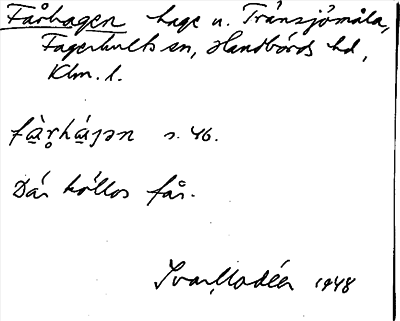 Fårhagen hage u. Tränsjömåla,
Fagerhults sn, Handbörds hd,
Klm. l.
fàrhájən s. 46.
Där hölls får.
Ivar Modéer 1948